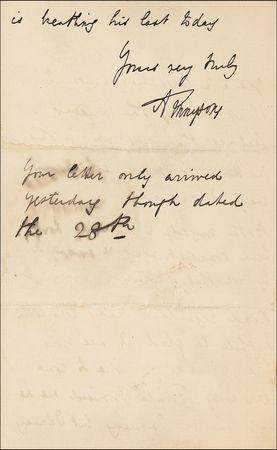 is breathing his last today
Yours very truly
A Tennyson
Your letter only arrived
yesterday though dated
the 28th